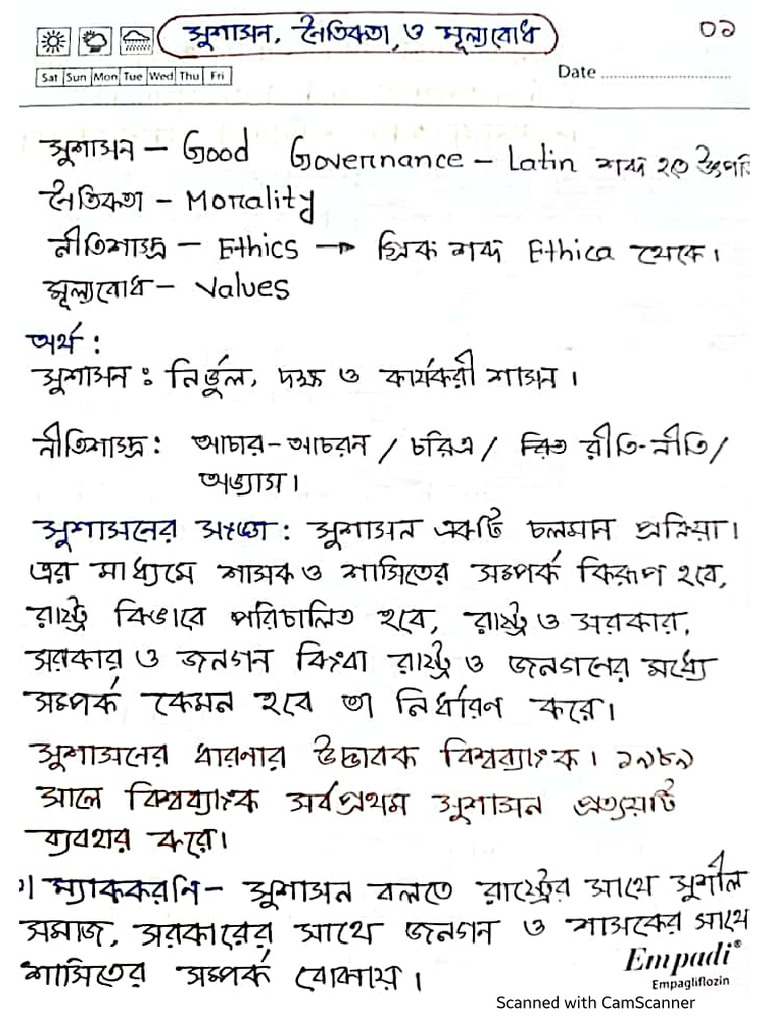 সুশাসন, নৈতিকতা, ও মূল্যবোধ
০১
Sat Sun Mon Tue Wed Thu Fri
Date
সুশাসন – Good Governance – Latin শব্দ হতে উৎপত্তি
নৈতিকতা – Morality
নীতিশাস্ত্র – Ethics → গ্রিক শব্দ Ethica থেকে।
মূল্যবোধ – Values
অর্থ :
সুশাসন : নির্ভুল, দক্ষ ও কার্যকরী শাসন।
নীতিশাস্ত্র : আচার-আচরন / চরিত্র / রীতি-নীতি/
অভ্যাস।
সুশাসনের সংজ্ঞা : সুশাসন একটি চলমান প্রক্রিয়া।
এর মাধ্যমে শাসক ও শাসিতের সম্পর্ক কিরূপ হবে,
রাষ্ট্র কিভাবে পরিচালিত হবে, রাষ্ট্র ও সরকার,
সরকার ও জনগন কিংবা রাষ্ট্র ও জনগনের মধ্যে
সম্পর্ক কেমন হবে তা নির্ধারণ করে।
সুশাসনের ধারনার উদ্ভাবক বিশ্বব্যাংক। ১৯৮৯
সালে বিশ্বব্যাংক সর্বপ্রথম সুশাসন প্রত্যয়টি
ব্যবহার করে।
১। ম্যাককরনি – সুশাসন বলতে রাষ্ট্রের সাথে সুশীল
সমাজ, সরকারের সাথে জনগন ও শাসকের সাথে
শাসিতের সম্পর্ক বোঝায়।
Empadi®
Empagliflozin
Scanned with CamScanner